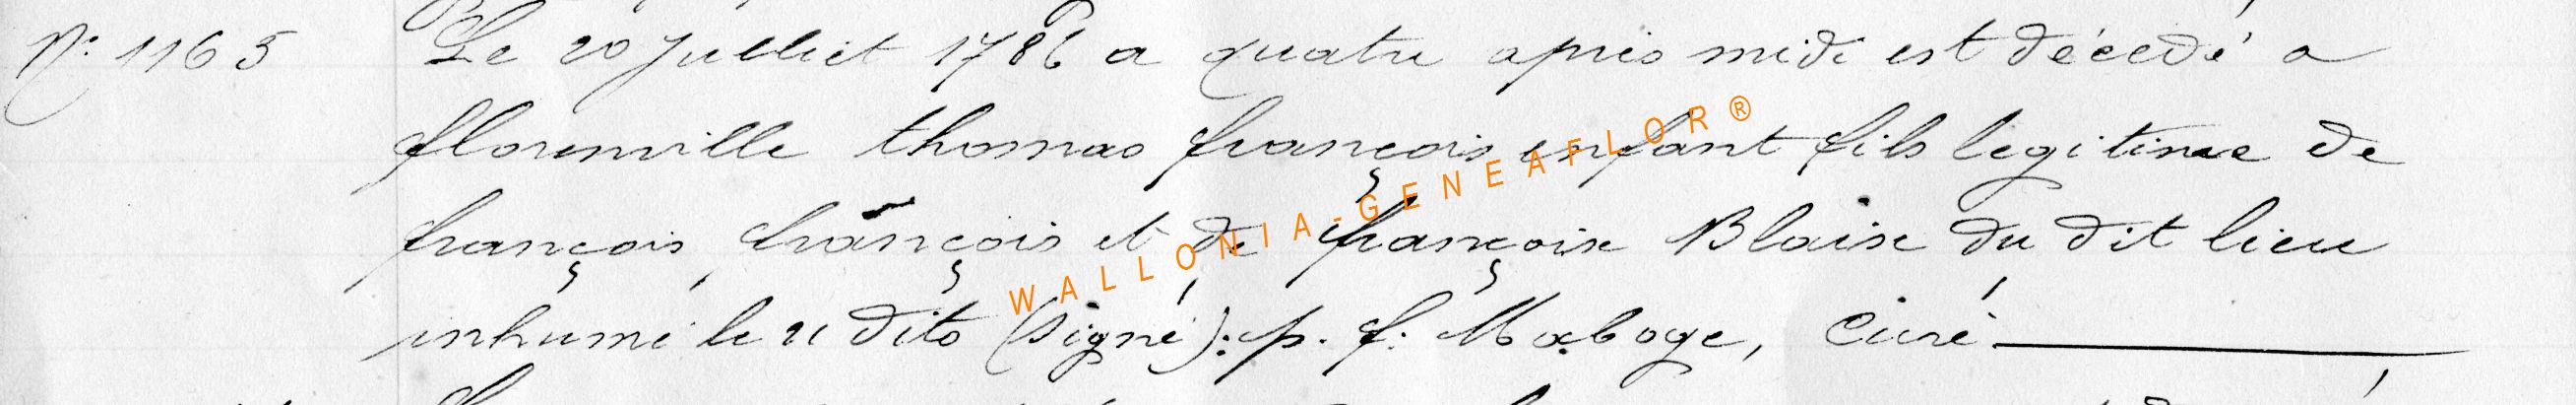 N° 1165 Le 20 Juilliet 1786 a quatre après midi est décedé a
florenville thomas françois enfant fils legitime de
françois françois et de françoise Blaise du dit lieu
inhumé le 21 dito (signé): p. f. Maboge, Curé
WALLONIA-GENEAFLOR®